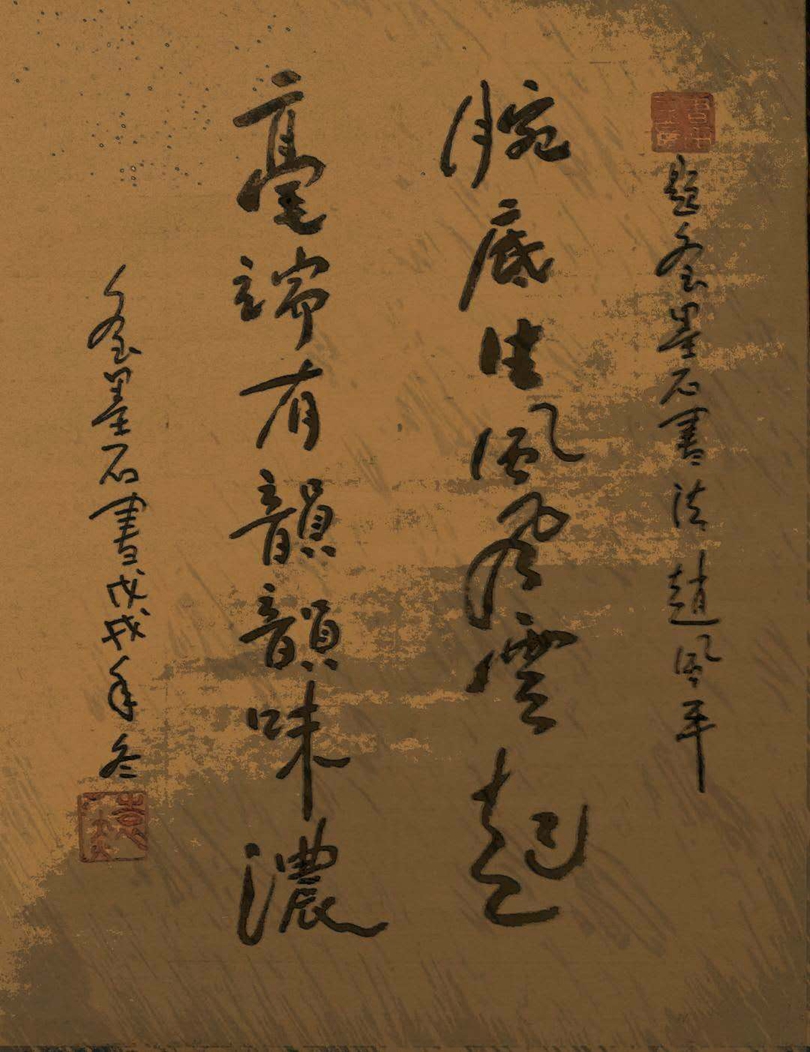 題金墨石書法 趙風平
腕底生風風雲起
毫端有韻韻味濃
金墨石書戊戌年冬